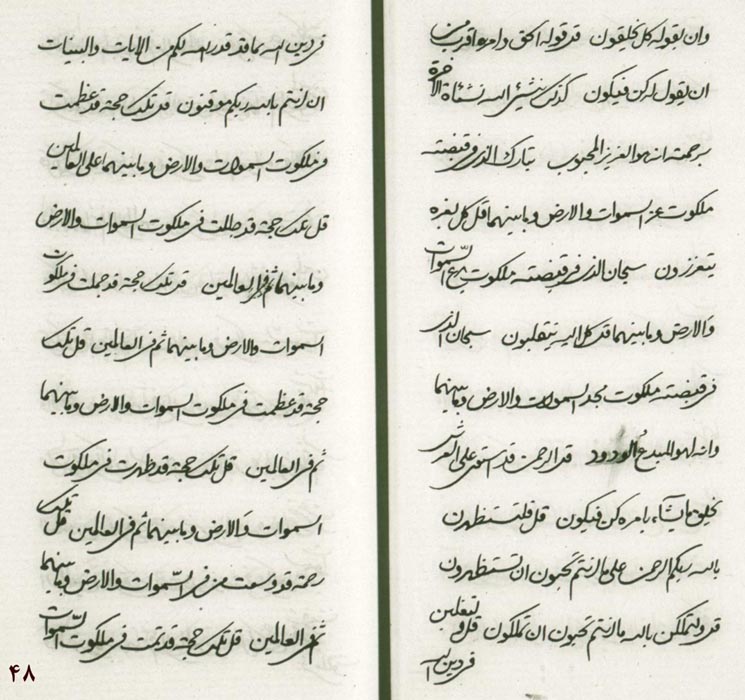 وان بقوله كل يخلقون قد قوله الحق وامره اقرب من
ان يقول له كن فيكون كذلك ينشئ الله نشئاة الاخرة
برحمته انه هو العزيز المحبوب تبارك الذي في قبضته
ملكوت عز السموات والارض وما بينهما قل كل بعزه
يتعززون سبحان الذي في قبضته ملكوت السموات
والارض وما بينهما قد كل اليه ينقلبون سبحان الذي
في قبضته ملكوت مجد السموات والارض وما بينهما
وانه لهو المبدع الودود قد الرحمن قد استوى على العرش
يخلق ما يشاء بامره كن فيكون قل فلتستظهرن
بالله ربكم الرحمن على ما انتم تحبون ان تستظهرون
قد ولتملكن بالله ما انتم تحبون ان تملكون قل ولتغلبن
في دين الله
في دين الله بما قد قدر الله لكم من الايات والبينات
ان انتم بالله ربكم موقنون قد تلك حجة قد عظمت
في ملكوت السموات والارض وما بينهما على العالمين
قل تلك حجة قد جللت في ملكوت السموات والارض
وما بينهما ثم في العالمين قد تلك حجة قد جملت في ملكوت
السموات والارض وما بينهما ثم في العالمين قل تلك
حجة قد عظمت في ملكوت السموات والارض وما بينهما
ثم في العالمين قل تلك حجة قد ظهرت في ملكوت
السموات والارض وما بينهما ثم في العالمين قل تلك
رحمة قد وسعت من في السموات والارض وما بينهما
ثم في العالمين قل تلك حجة قد تمت في ملكوت السموات
۴۸